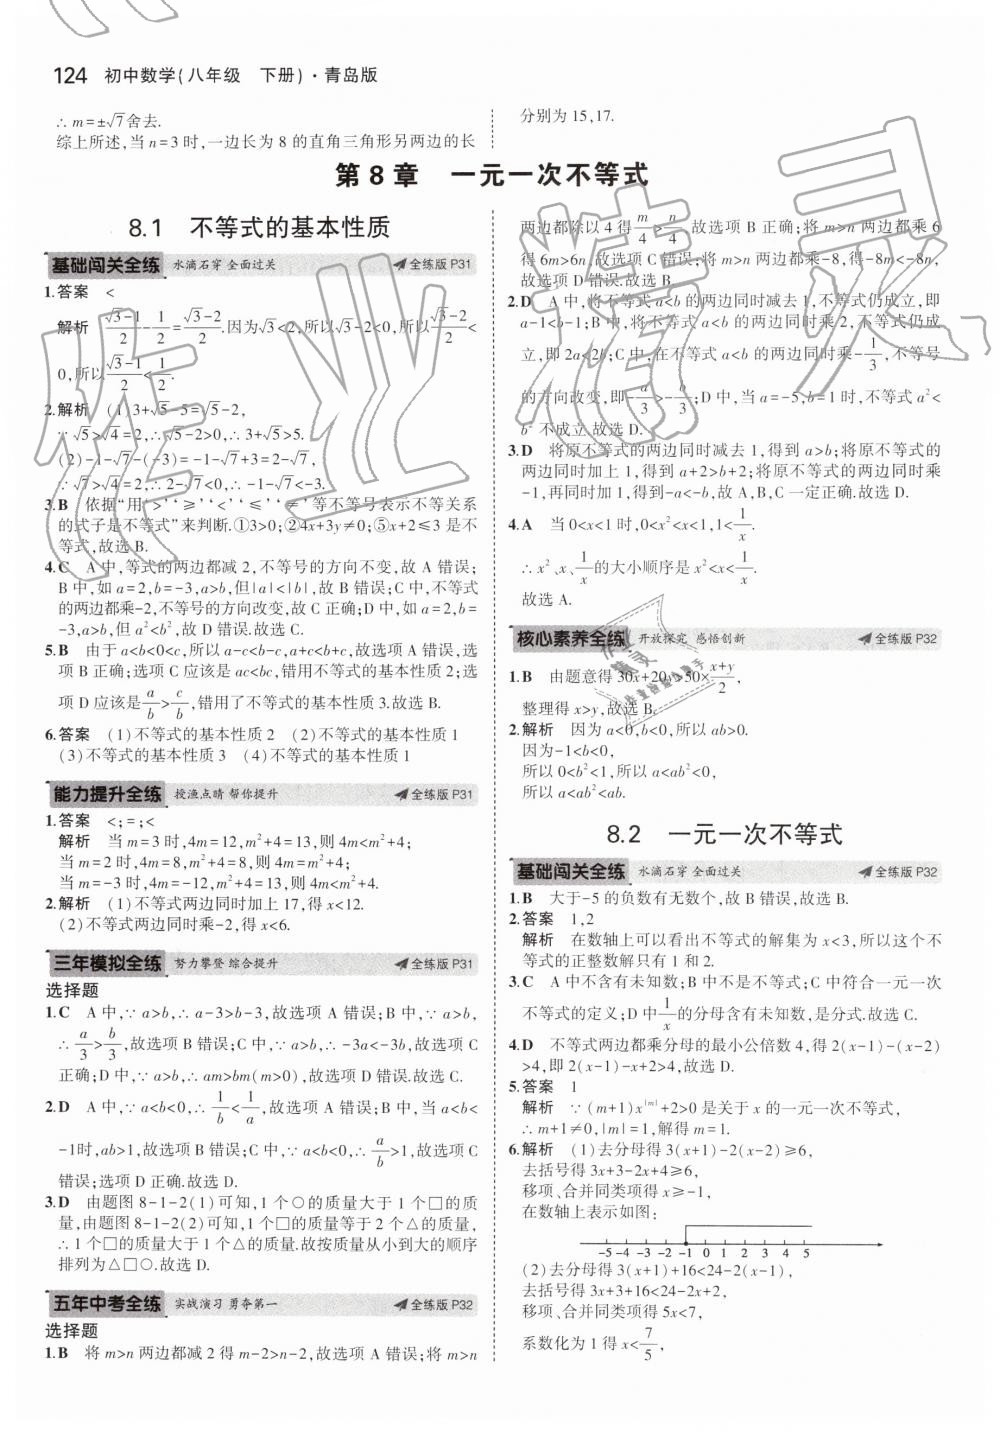 124 初中数学(八年级 下册)·青岛版
∴m=±√7舍去.
综上所述,当n=3时,一边长为8的直角三角形另两边的长
分别为15,17.
第8章 一元一次不等式
8.1 不等式的基本性质
基础闯关全练 水滴石穿 全面过关 全练版P31
1.答案 <
解析 (√3-1)/2-1/2=(√3-2)/2.因为√3<2,所以√3-2<0,所以(√3-2)/2<
0,所以(√3-1)/2<1/2.
2.解析 (1)3+√5-5=√5-2,
∵√5>√4=2,∴√5-2>0,∴3+√5>5.
(2)-1-√7-(-3)=-1-√7+3=2-√7,
∵√7>√4=2,∴2-√7<0,∴-1-√7<-3.
3.B 依据“用‘>’‘≥’‘<’‘≤’‘≠’等不等号表示不等关系
的式子是不等式”来判断.①3>0;②4x+3y≠0;⑤x+2≤3是不
等式,故选B.
4.C A中,等式的两边都减2,不等号的方向不变,故A错误;
B中,如a=2,b=-3,a>b,但|a|<|b|,故B错误;C中,不等式
的两边都乘-2,不等号的方向改变,故C正确;D中,如a=2,b=
-3,a>b,但a²<b²,故D错误.故选C.
5.B 由于a<b<0<c,所以a-c<b-c,a+c<b+c,故选项A错误,选
项B正确;选项C应该是ac<bc,错用不等式的基本性质2;选
项D应该是a/b>c/b,错用了不等式的基本性质3.故选B.
6.答案 (1)不等式的基本性质2 (2)不等式的基本性质1
(3)不等式的基本性质3 (4)不等式的基本性质1
能力提升全练 授渔点睛 帮你提升 全练版P31
1.答案 <;=;<
解析 当m=3时,4m=12,m²+4=13,则4m<m²+4;
当m=2时,4m=8,m²+4=8,则4m=m²+4;
当m=-3时,4m=-12,m²+4=13,则4m<m²+4.
2.解析 (1)不等式两边同时加上17,得x<12.
(2)不等式两边同时乘-2,得x<6.
三年模拟全练 努力攀登 综合提升 全练版P31
选择题
1.C A中,∵a>b,∴a-3>b-3,故选项A错误;B中,∵a>b,
∴a/3>b/3,故选项B错误;C中,∵a>b,∴-3a<-3b,故选项C
正确;D中,∵a>b,∴am>bm(m>0),故选项D错误.故选C.
2.D A中,∵a<b<0,∴1/b<1/a,故选项A错误;B中,当a<b<
-1时,ab>1,故选项B错误;C中,∵a<b<0,∴a/b>1,故选项C
错误;选项D正确.故选D.
3.D 由题图8-1-2(1)可知,1个○的质量大于1个□的质
量,由题图8-1-2(2)可知,1个□的质量等于2个△的质量,
∴1个□的质量大于1个△的质量.故按质量从小到大的顺序
排列为△□○.故选D.
五年中考全练 实战演习 勇夺第一 全练版P32
选择题
1.B 将m>n两边都减2得m-2>n-2,故选项A错误;将m>n
两边都除以4得m/4>n/4,故选项B正确;将m>n两边都乘6
得6m>6n,故选项C错误;将m>n两边都乘-8,得-8m<-8n,
故选项D错误.故选B.
2.D A中,将不等式a<b的两边同时减去1,不等式仍成立,即
a-1<b-1;B中,将不等式a<b的两边同时乘2,不等式仍成
立,即2a<2b;C中,在不等式a<b的两边同时乘-1/3,不等号
的方向改变,即-a/3>-b/3;D中,当a=-5,b=1时,不等式a²<
b²不成立.故选D.
3.D 将原不等式的两边同时减去1,得到a>b;将原不等式的
两边同时加上1,得到a+2>b+2;将原不等式的两边同时乘
-1,再同时加1,得到-a<-b,故A,B,C一定正确.故选D.
4.A 当0<x<1时,0<x²<x<1,1<1/x.
∴x²、x、1/x的大小顺序是x²<x<1/x.
故选A.
核心素养全练 开放探究 感悟创新 全练版P32
1.B 由题意得30x+20y>50×(x+y)/2,
整理得x>y,故选B.
2.解析 因为a<0,b<0,所以ab>0.
因为-1<b<0,
所以0<b²<1,所以a<ab²<0,
所以a<ab²<ab.
8.2 一元一次不等式
基础闯关全练 水滴石穿 全面过关 全练版P32
1.B 大于-5的负数有无数个,故B错误,故选B.
2.答案 1,2
解析 在数轴上可以看出不等式的解集为x<3,所以这个不
等式的正整数解只有1和2.
3.C A中不含有未知数;B中不是不等式;C中符合一元一次
不等式的定义;D中1/x的分母含有未知数,是分式.故选C.
4.D 不等式两边都乘分母的最小公倍数4,得2(x-1)-(x-2)
>4,即2(x-1)-x+2>4,故选D.
5.答案 1
解析 ∵(m+1)x^|m|+2>0是关于x的一元一次不等式,
∴m+1≠0,|m|=1,解得m=1.
6.解析 (1)去分母得3(x+1)-2(x-2)≥6,
去括号得3x+3-2x+4≥6,
移项、合并同类项得x≥-1,
在数轴上表示如图:
-5 -4 -3 -2 -1 0 1 2 3 4 5
(2)去分母得3(x+1)+16<24-2(x-1),
去括号得3x+3+16<24-2x+2,
移项、合并同类项得5x<7,
系数化为1得x<7/5,